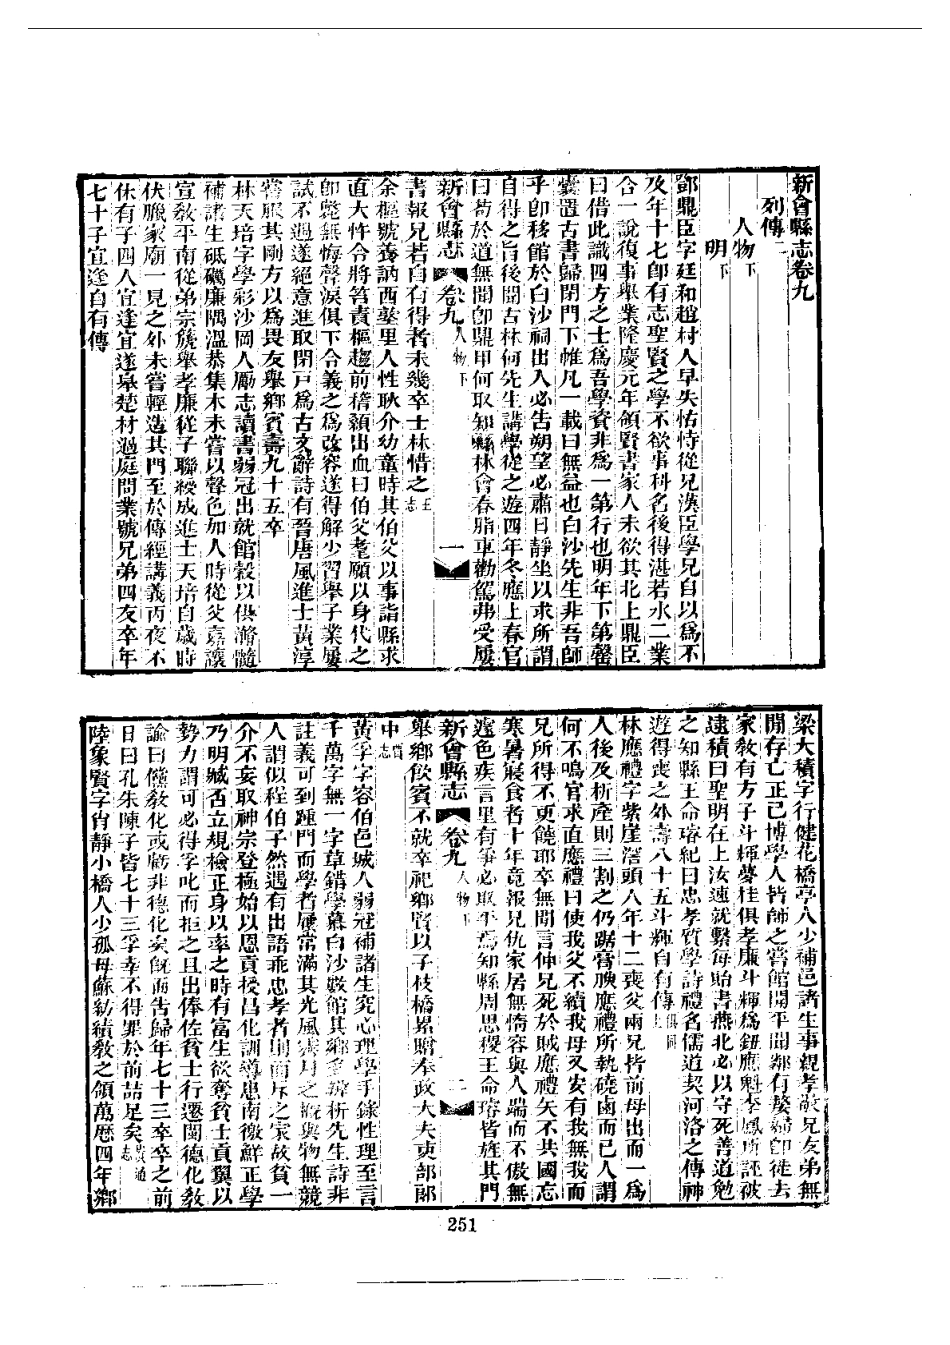 新會縣志卷九
列傳二
人物下
明
鄧鼎臣字廷和趙村人早失怙恃從兄漢臣學兄自以為不
及年十七卽有志聖賢之學不欲事科名後得湛若水二業
合一說復事舉業隆慶元年領賢書家人未欲其北上鼎臣
曰借此識四方之士為吾學資非為一第行也明年下第罄
囊置古書歸閉門下帷凡一載曰無益也白沙先生非吾師
乎卽移館於白沙祠出入必告朔望必肅日靜坐以求所謂
自得之旨後聞古林何先生講學從之遊四年冬應上春官
曰苟於道無聞卽鼎甲何取知縣林會春脂車勸駕弗受屢
新會縣志 卷九 人物下 一
書報兄若自有得者未幾卒士林惜之王志
余樞號養訥西墪里人性耿介幼童時其伯父以事詣縣求
直大忤令將笞責樞趨前稽顙出血曰伯父耄願以身代之
卽斃無悔聲淚俱下令義之為改容遂得解少習舉子業屢
試不遇遂絕意進取閉戸為古文辭詩有晉唐風進士黃淳
嘗服其剛方以為畏友舉鄉賓壽九十五卒
林天培字學彩沙岡人勵志讀書弱冠出就館穀以供滫髓
補諸生砥礪廉隅溫恭集木未嘗以聲色加人時從父嘉讓
宣敎平南從弟宗旒舉孝廉從子聯綬成進士天培自歲時
伏臘家廟一見之外未嘗輕造其門至於傳經講義丙夜不
休有子四人宜逢宜遂皋楚材過庭問業號兄弟四友卒年
七十子宜逢自有傳
梁大積字行健花橋亭人少補邑諸生事親孝敬兄友弟無
間存亡正已博學人皆師之嘗館開平聞鄰有嫠婦卽徙去
家敎有方子斗輝夢桂俱孝廉斗輝為鈕應魁李鳳所誣被
逮積曰聖明在上汝速就繫每貽書燕北必以守死善道勉
之知縣王命璿紀曰忠孝質學詩禮名儒道契河洛之傳神
遊得喪之外壽八十五斗輝自有傳
林應禮字紫崖濠頭人年十二喪父兩兄皆前母出而一為
人後及析產則三割之仍踞膏腴應禮所執磽鹵而已人謂
何不鳴官求直應禮曰使我父不續我母又安有我無我而
兄所得不更饒耶卒無間言仲兄死於賊應禮矢不共國忘
寒暑寢食者十年竟報兄仇家居無惰容與人端而不傲無
遽色疾言里有爭必取平焉知縣周思稷王命璿皆旌其門
新會縣志 卷九 人物下 二
舉鄉飲賓不就卒祀鄉賢以子枝橋累贈奉政大夫吏部郎
中賈志
黃孚字容伯邑城人弱冠補諸生究心理學手錄性理至言
千萬字無一字草錯學慕白沙 館其鄉 辨析先生詩非
註義可到踵門而學者屨常滿其光風霽月之 與物無競
人謂似程伯子然遇有出語乖忠孝者則面斥之家故貧一
介不妄取神宗登極始以恩貢授昌化訓導患南徼鮮正學
乃明臧否立規檢正身以率之時有富生欲奪貧士貢翼以
勢力謂可必得孚叱而拒之且出俸佐貧士行遷閩德化敎
諭曰儻敎化或窮非德化矣旣而告歸年七十三卒卒之前
日曰孔朱陳子皆七十三孚幸不得罪於前喆足矣黃通志
陸象賢字肖靜小橋人少孤母蘇紡績敎之領萬歷四年鄉
251